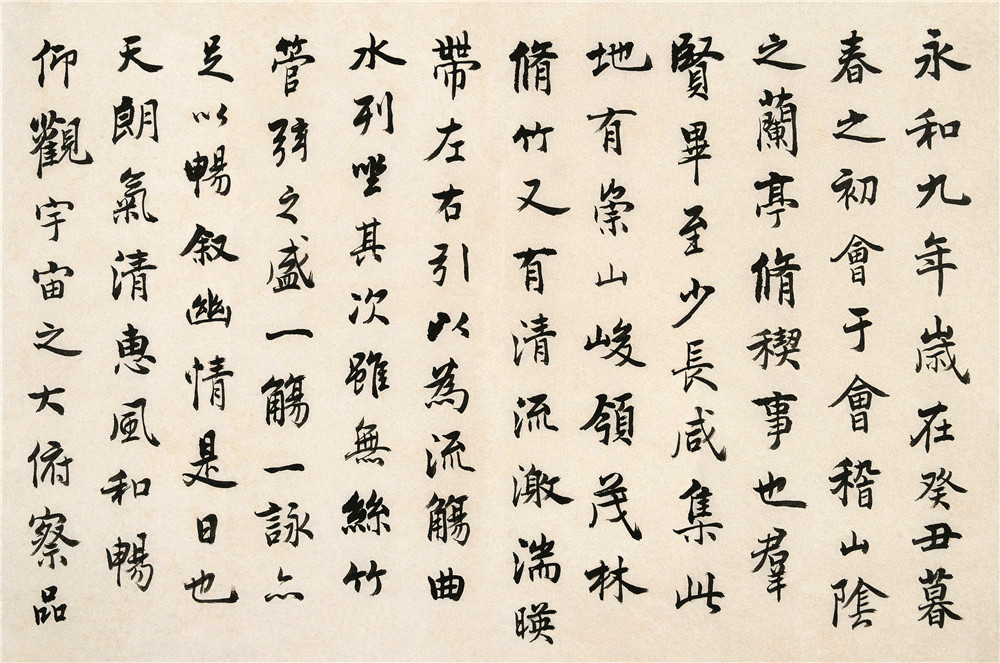 永和九年歲在癸丑暮
春之初會于會稽山陰
之蘭亭脩稧事也羣
賢畢至少長咸集此
地有崇山峻領茂林
脩竹又有清流激湍暎
帶左右引以為流觴曲
水列坐其次雖無絲竹
管弦之盛一觴一詠亦
足以暢敘幽情是日也
天朗氣清惠風和暢
仰觀宇宙之大俯察品